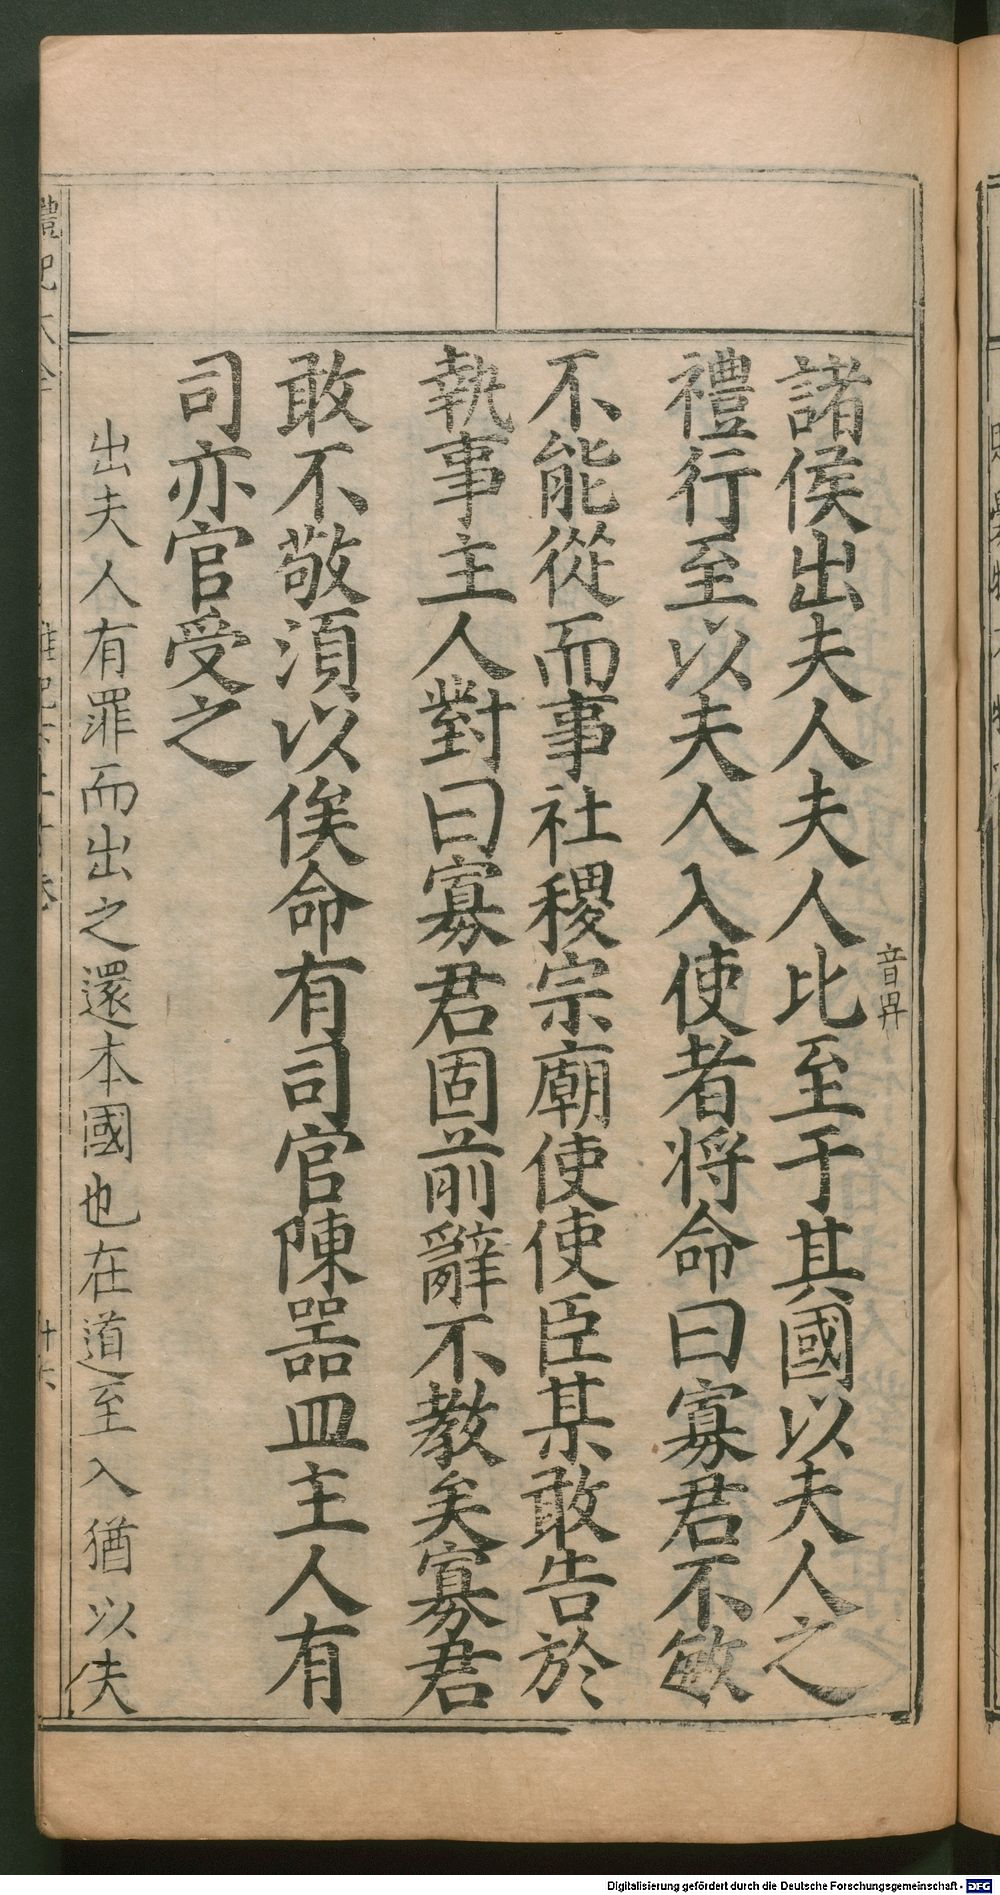 諸侯出夫人夫人比至于其國以夫人之
音畀
禮行至以夫人入使者将命曰寡君不敏
不能從而事社稷宗廟使使臣某敢告於
執事主人對曰寡君固前辭不教矣寡君
敢不敬湏以俟命有司官陳器皿主人有
司亦官受之
出夫人有罪而出之還本國也在道至入猶以夫
禮記大全
雜記下二十卷
廿六
Digitalisierung gefördert durch die Deutsche Forschungsgemeinschaft - DFG